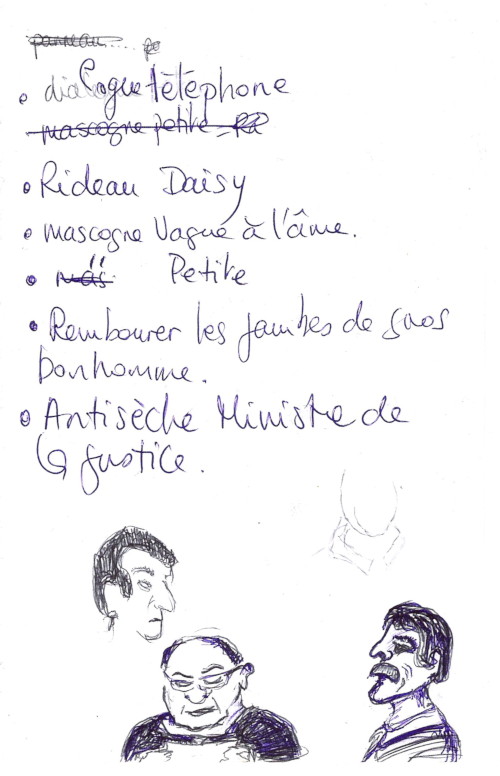 panneau....
• dialogue téléphone
mascogne petite
• Rideau Daisy
• mascogne Vague à l'âme.
• " Petite
• Rembourer les jambes de gros
bonhomme.
• Antisèche Ministre de
la Justice.